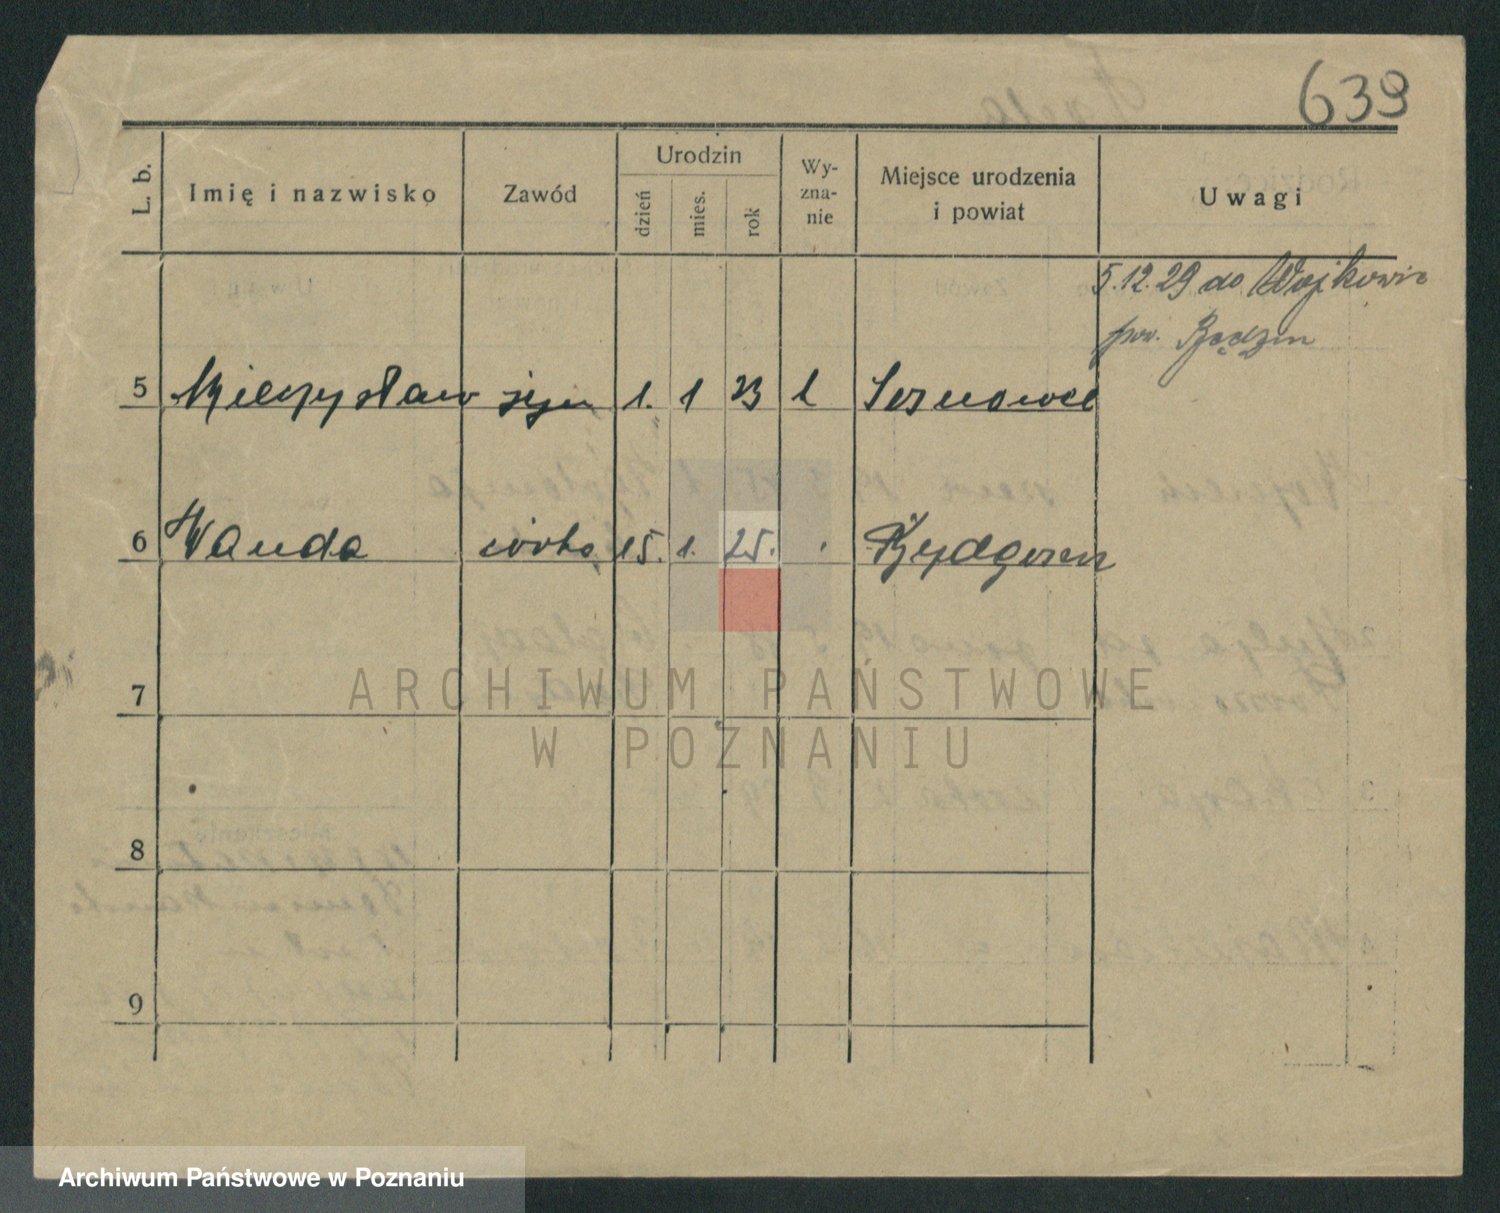 639
L. b. Imię i nazwisko Zawód Urodzin dzień mies. rok Wy-zna-nie Miejsce urodzenia i powiat Uwagi
5.12.29 do Wojkowic
pow. Będzin
5 Mieczysław syn 1. 1 23 Sosnowce
6 Wanda córka 15. 1. 25. Bydgoszcz
7
ARCHIWUM PAŃSTWOWE
W POZNANIU
8
9
Archiwum Państwowe w Poznaniu